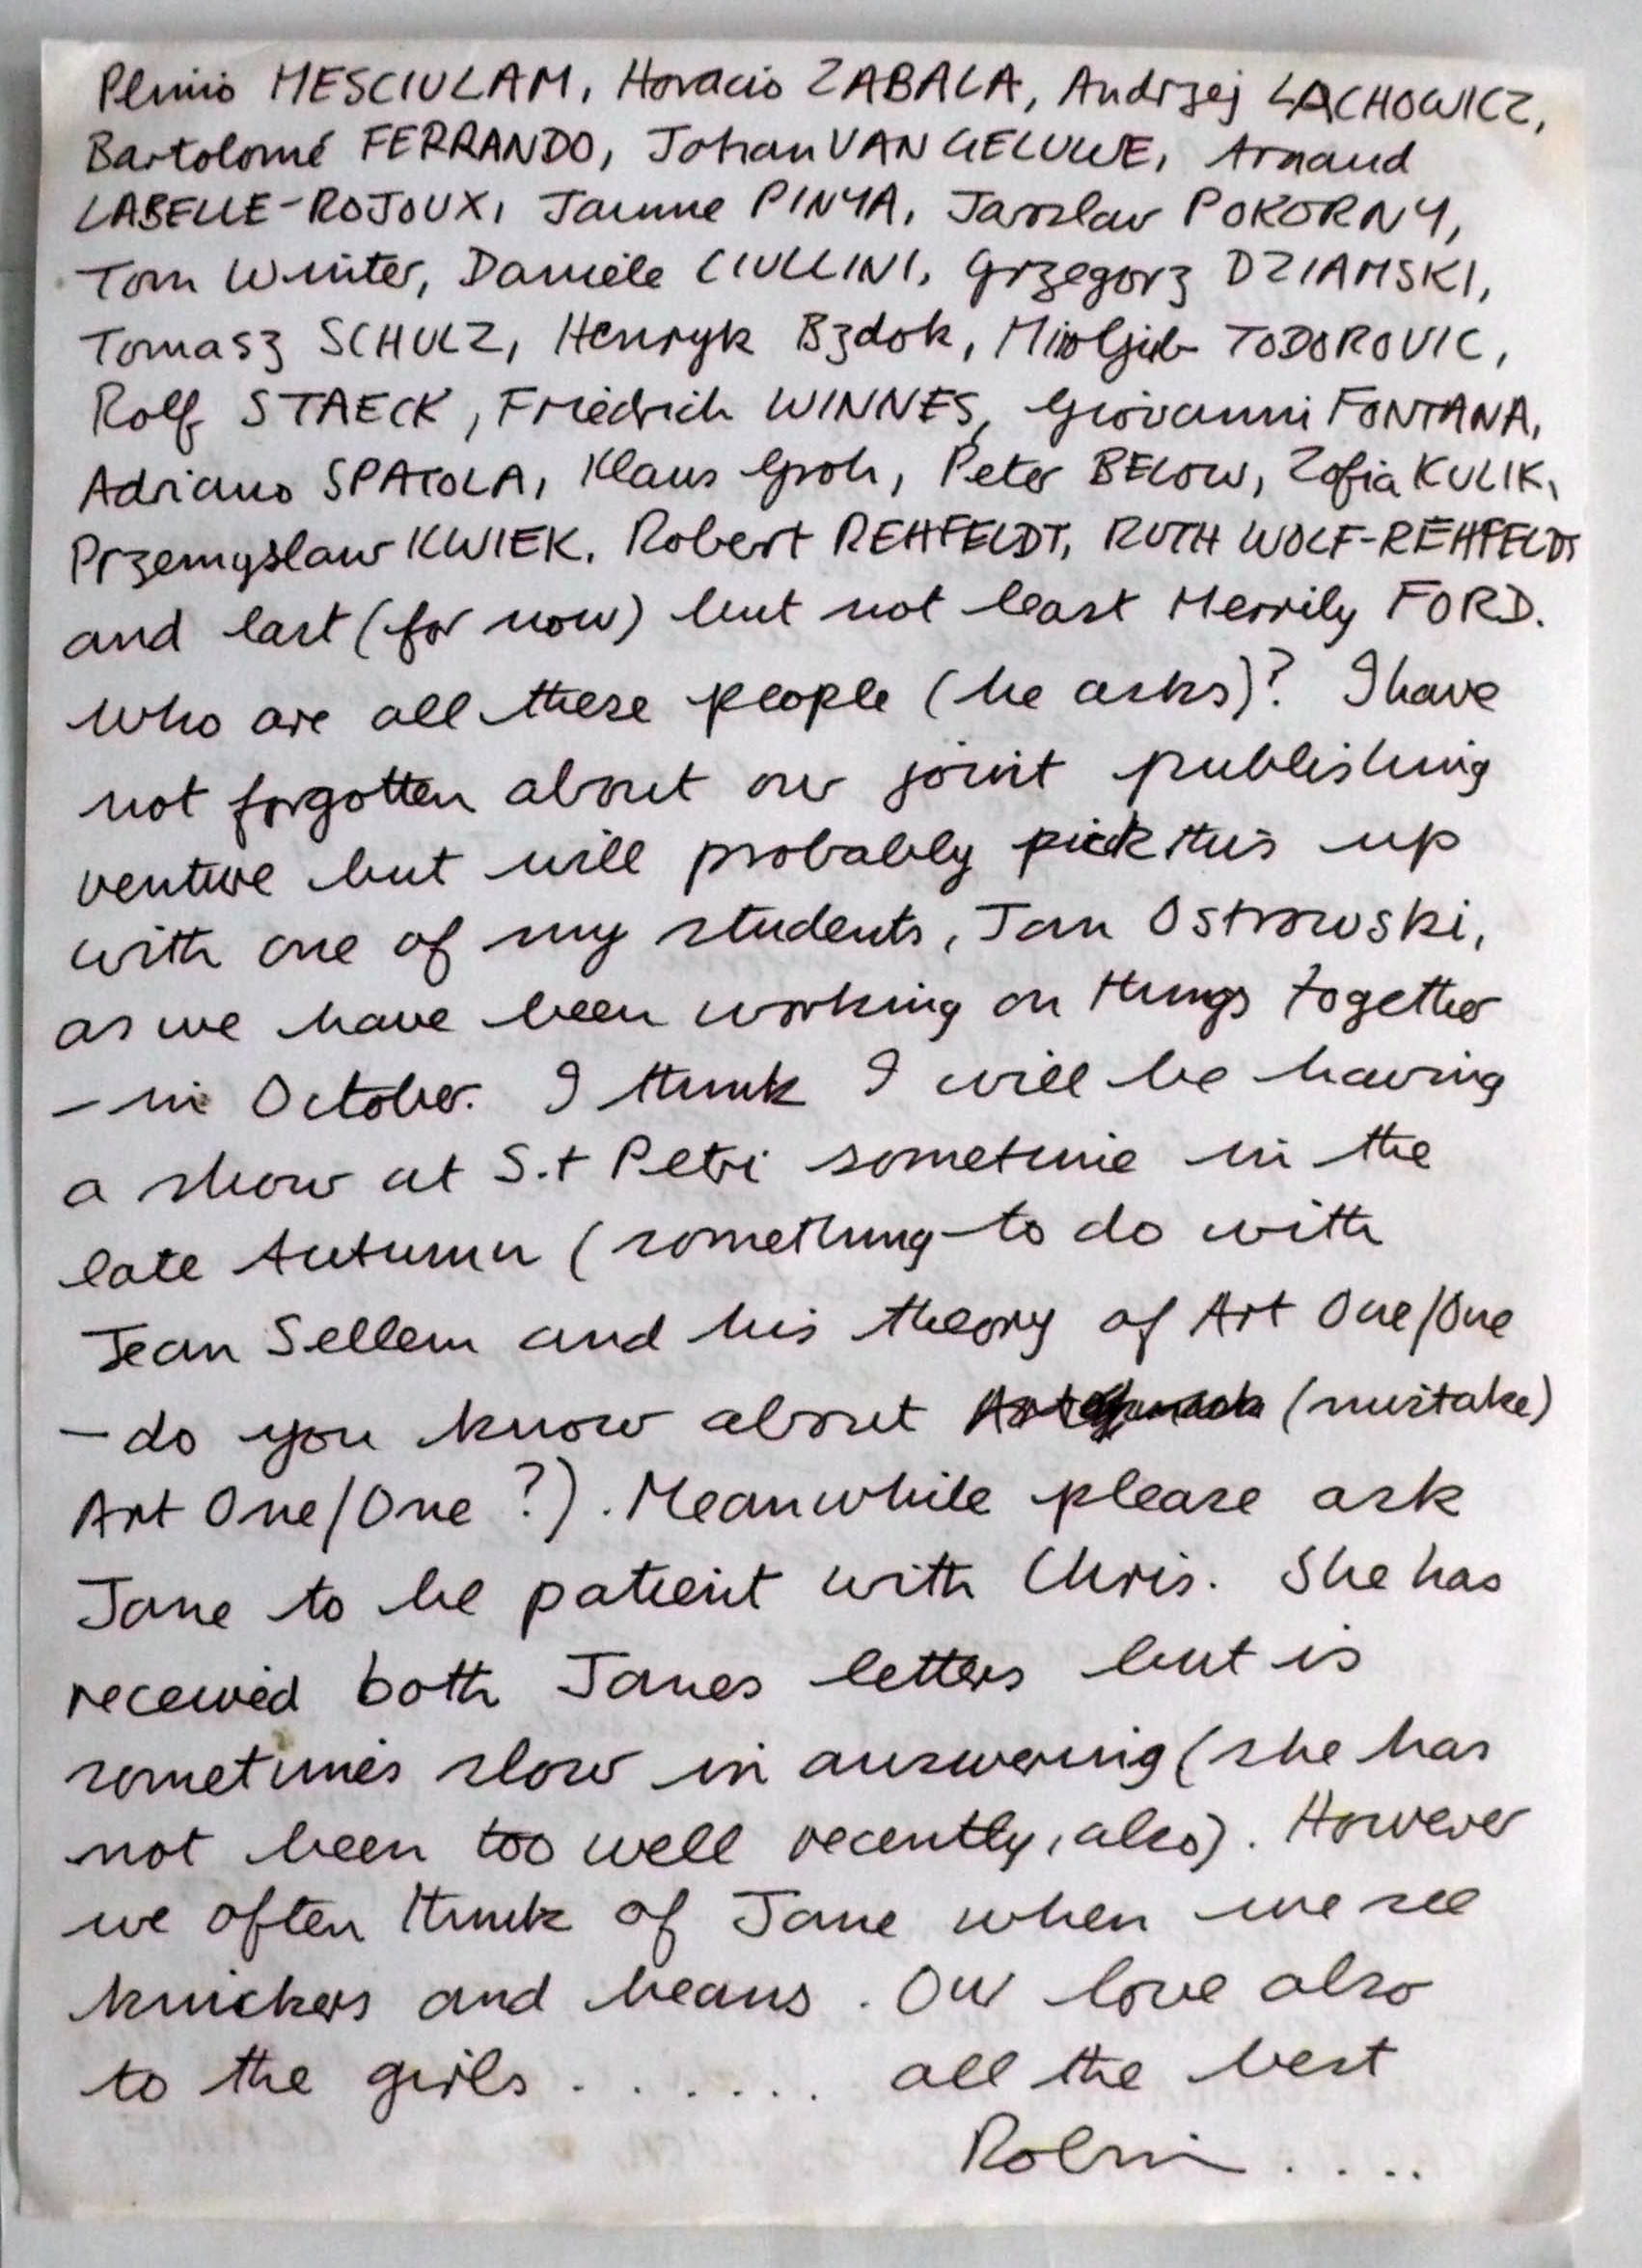 Plinio MESCIULAM, Horacio ZABALA, Andrzej LACHOWICZ,
Bartolomé FERRANDO, Johan VAN GELUWE, Arnaud
LABELLE-ROJOUX, Jaume PINYA, Jaroslaw POKORNY,
Tom Winter, Danièle CIULLINI, Grzegorz DZIAMSKI,
Tomasz SCHULZ, Henryk Bzdok, Miroljub TODOROVIC,
Rolf STAECK, Friedrich WINNES, Giovanni FONTANA,
Adriano SPATOLA, Klaus Groh, Peter BELOW, Zofia KULIK,
Przemyslaw KWIEK, Robert REHFELDT, RUTH WOLF-REHFELDT
and last (for now) but not least Merrily FORD.
Who are all these people (he asks)? I have
not forgotten about our joint publishing
venture but will probably pick this up
with one of my students, Jan Ostrowski,
as we have been working on things together
– in October. I think I will be having
a show at S.t Petri sometime in the
late Autumn (something to do with
Jean Sellem and his theory of Art One/One
– do you know about (mistake)
Art One/One ?). Meanwhile please ask
Jane to be patient with Chris. She has
received both Janes letters but is
sometimes slow in answering (she has
not been too well recently, also). However
we often think of Jane when we see
knickers and beans. Our love also
to the girls . . . . . . . all the best
Robin . . . .